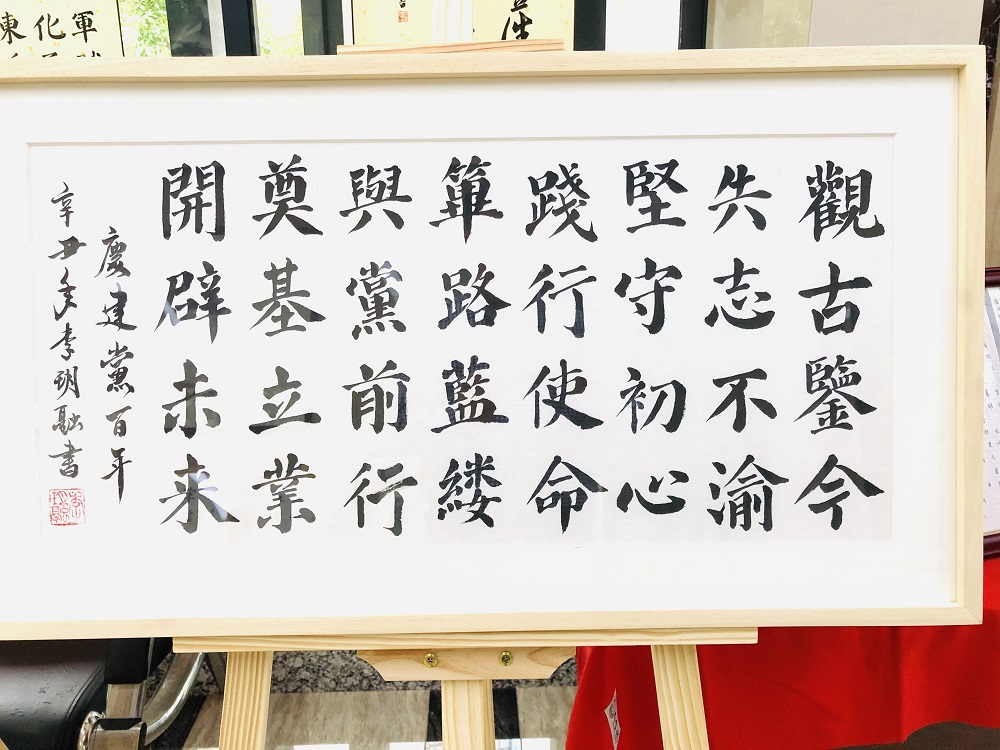 觀古鑒今
失志不渝
堅守初心
踐行使命
篳路藍縷
與黨前行
奠基立業
開辟未来
慶建黨百年
辛丑年李玥融書
軍
化
東